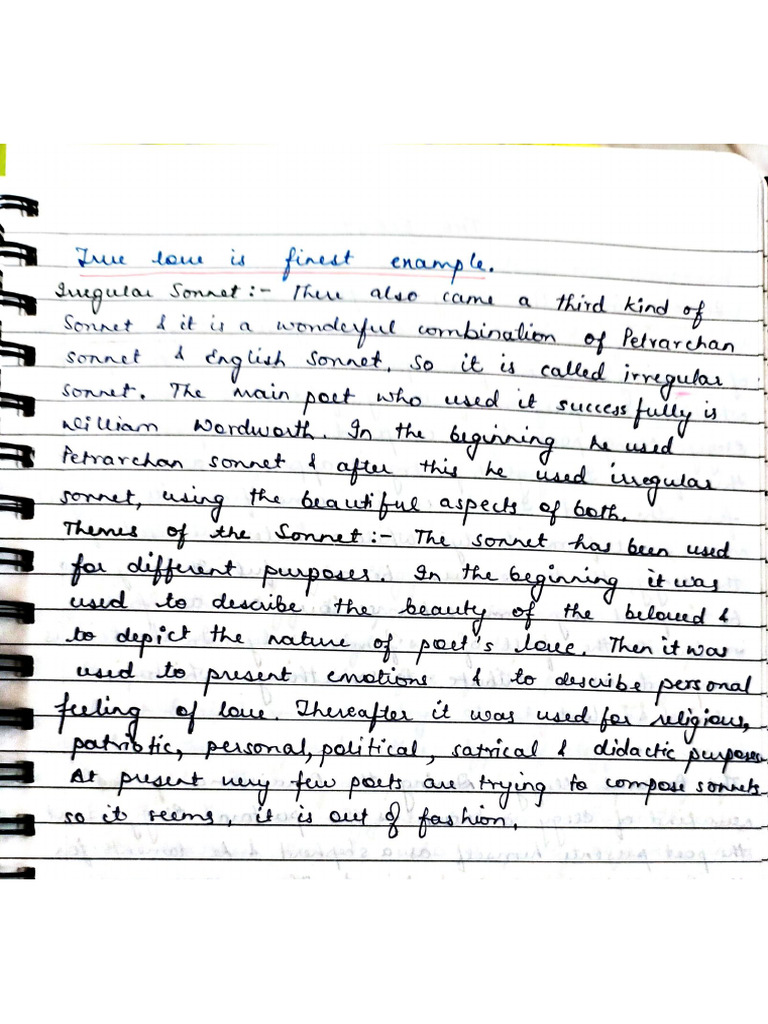 True love is finest example.
Irregular Sonnet :- There also came a third kind of
Sonnet & it is a wonderful combination of Petrarchan
sonnet & English Sonnet. So it is called irregular
sonnet. The main poet who used it successfully is
William Wordworth. In the beginning he used
Petrarchan sonnet & after this he used irregular
sonnet, using the beautiful aspects of both.
Themes of the Sonnet :- The sonnet has been used
for different purposes. In the beginning it was
used to describe the beauty of the beloved &
to depict the nature of poet's love. Then it was
used to present emotions & to describe personal
feeling of love. Thereafter it was used for religious,
patriotic, personal, political, satrical & didactic purposes
At present very few poets are trying to compose sonnets
so it seems, it is out of fashion.